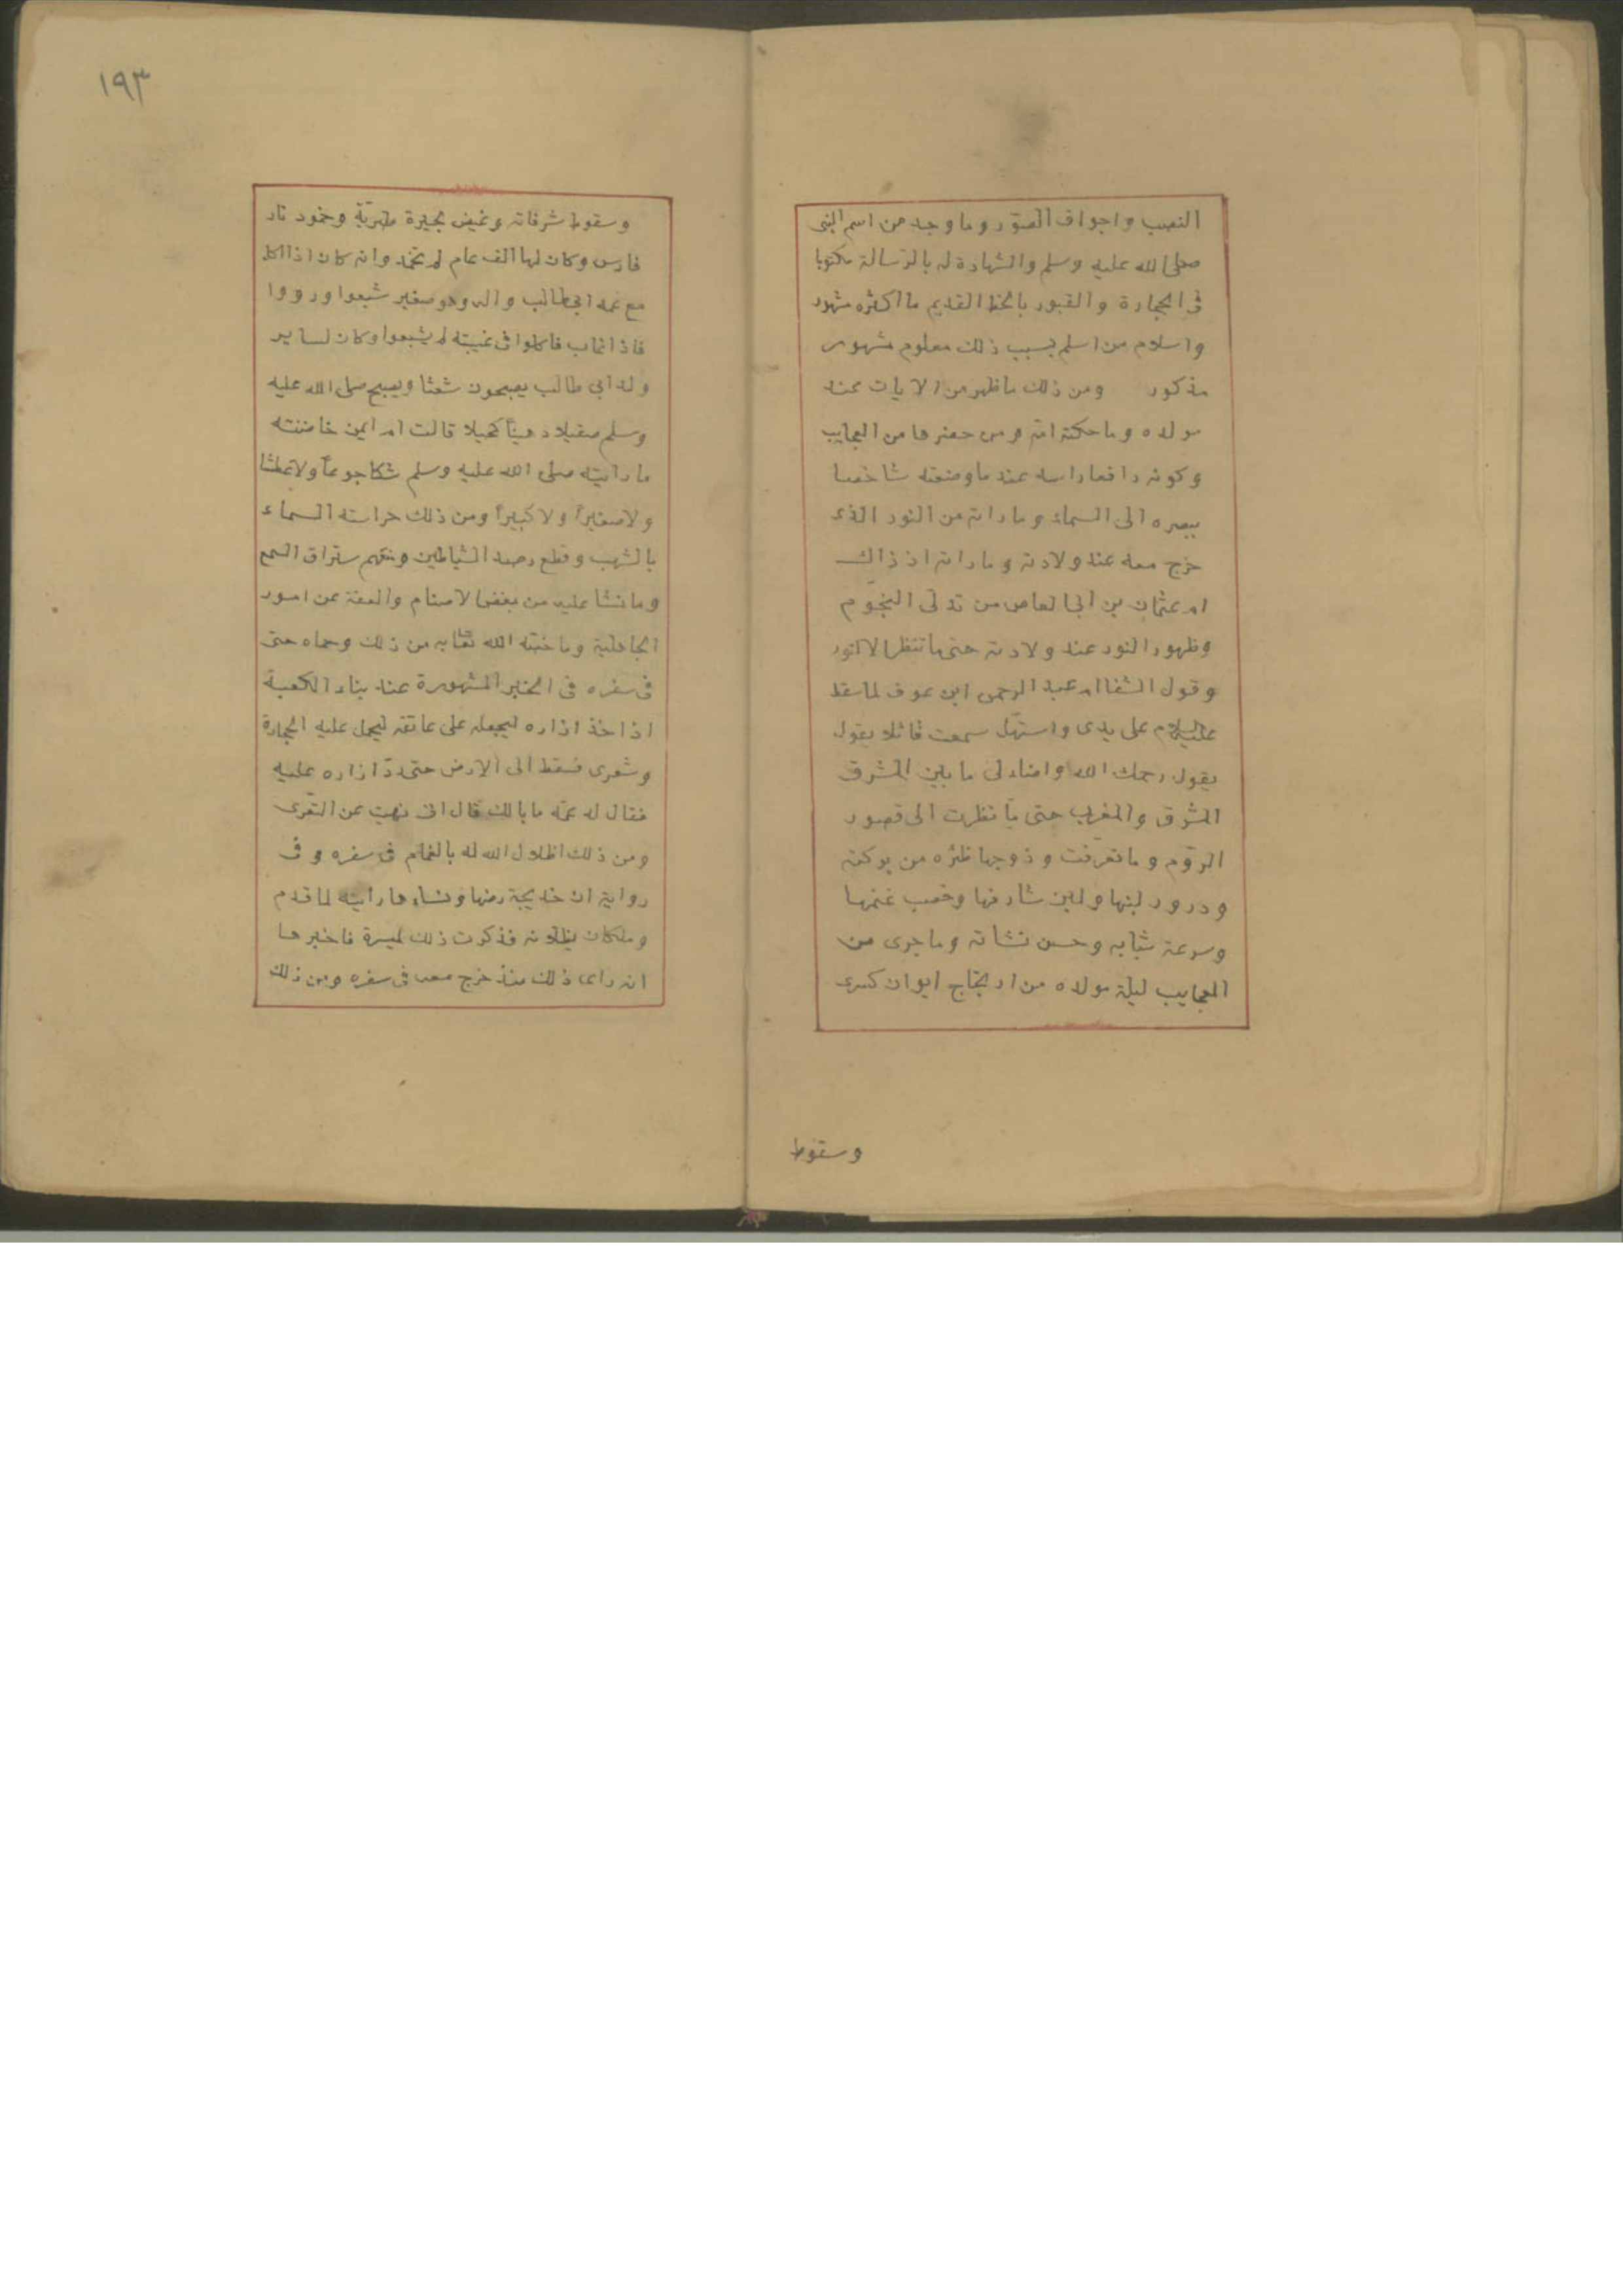 النصب واجواف الصور وما وجد من اسم النبى
صلى الله عليه وسلم والشهادة له بالرسالة مكتوبا
فى الحجارة والقبور بالخط القديم ما اكثره مشهور
واسلام من اسلم بسبب ذلك معلوم مشهور
مذكور ومن ذلك ما ظهر من الايات عند
مولاه وما حكته امه ومن حضرها من العجايب
وكونه رافعا راسه عند ما وضعته شاخصا
ببصره الى السماء وما راته من النور الذى
خرج معه عند ولادته وما راته اذ ذاك
ام عثمان بن ابى العاص من تدلى النجوم
وظهور النور عند ولادته حتى ما تنظر الا النور
وقول الشفا ام عبد الرحمن ابن عوف لما سقط
عليه السلام على يدى واستهل سمعت قائلا يقول
يقول رحمك الله واضاء لى ما بين المشرق
المشرق والمغرب حتى نظرت الى قصور
الروم وما تعرفت وزوجها ظئره من بركته
ودرور لبنها ولبن شارفها وخصب غنمها
وسرعة شبابه وحسن نشاته وما جرى من
العجايب ليلة مولاه من ارتجاج ايوان كسرى
وسقوط
١٩٣
وسقوط شرفاته وغيض بحيرة طبرية وخمود نار
فارس وكان لها الف عام لم تخمد وانه كان اذا اكل
مع عمه ابى طالب واله وهو صغير شبعوا ورووا
فاذا غاب فاكلوا فى غيبته لم يشبعوا وكان لساير
ولد ابى طالب يصبحون شعثا ويصبح صلى الله عليه
وسلم صقيلا دهينا كحيلا قالت ام ايمن حاضنته
ما رايته صلى الله عليه وسلم شكا جوعا ولا عطشا
ولا صغيرا ولا كبيرا ومن ذلك حراسة السماء
بالشهب وقطع رصد الشياطين ومنعهم ستراق السمع
وما نشا عليه من بغض الاصنام والعفة عن امور
الجاهلية وما خصه الله تعا به من ذلك وحماه حتى
فى سفره فى الخبر المشهورة عند بناء الكعبة
اذ اخذ ازاره ليجعله على عاتقه ليحمل عليه الحجارة
وتعرى فسقط الى الارض حتى رد ازاره عليه
فقال له عمه ما بالك قال انى نهيت عن التعرى
ومن ذلك اظلال الله له بالغمام فى سفره وفى
رواية ان خديجة رضها ونساءها راينه لما قدم
وملكان يظلانه فذكرت ذلك لميسرة فاخبرها
انه راى ذلك منذ خرج معه فى سفره ومن ذلك